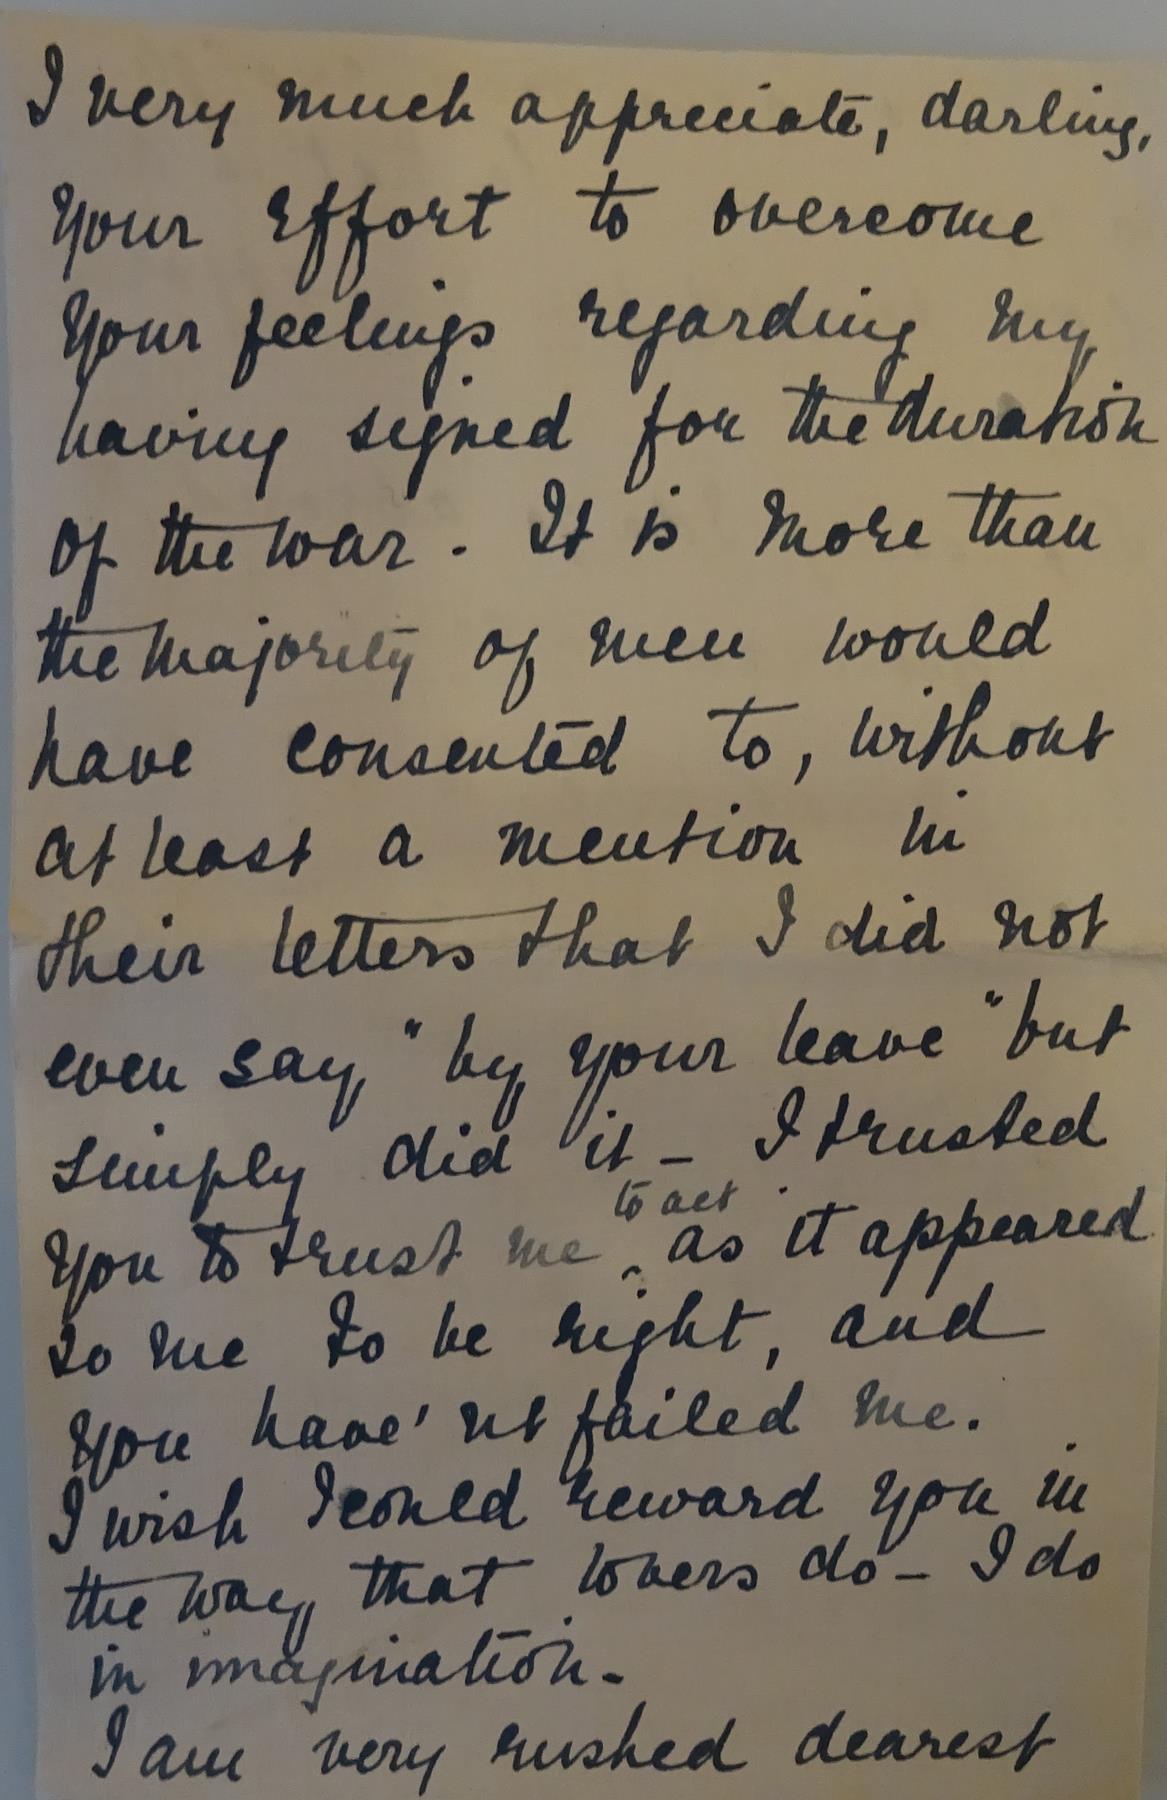 I very much appreciate, darling,
your effort to overcome
your feelings regarding my
having signed for the duration
of the war. It is more than
the majority of men would
have consented to, without
at least a mention in
their letters that I did not
even say "by your leave" but
simply did it - I trusted
you to trust me to act as it appeared
to me to be right, and
you have'nt failed me.
I wish I could reward you in
the way that lovers do - I do
in imagination -
I am very rushed dearest